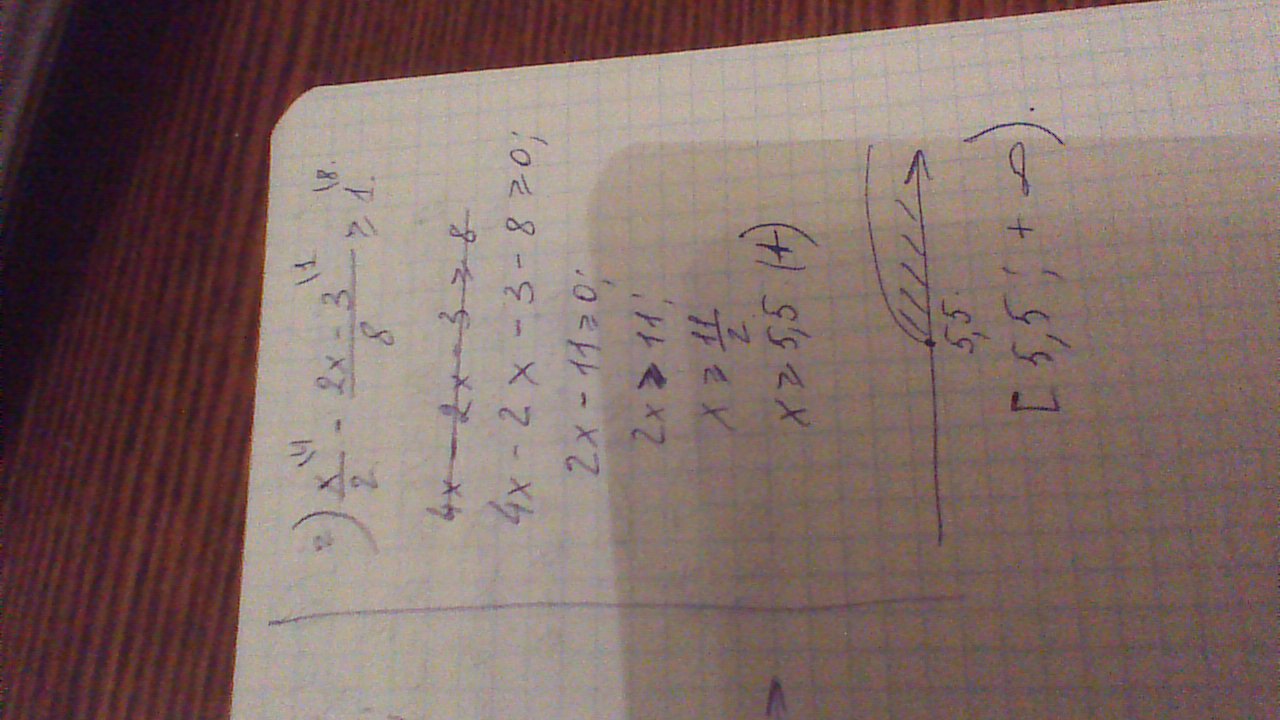 г) x/2 \4 - 2x - 3/8 \1 ≥ 1 \8.
4x - 2x - 3 ≥ 8
4x - 2x - 3 - 8 ≥ 0;
2x - 11 ≥ 0;
2x ≥ 11;
x ≥ 11/2
x ≥ 5,5 (+)
5,5.
[5,5; + ∞).